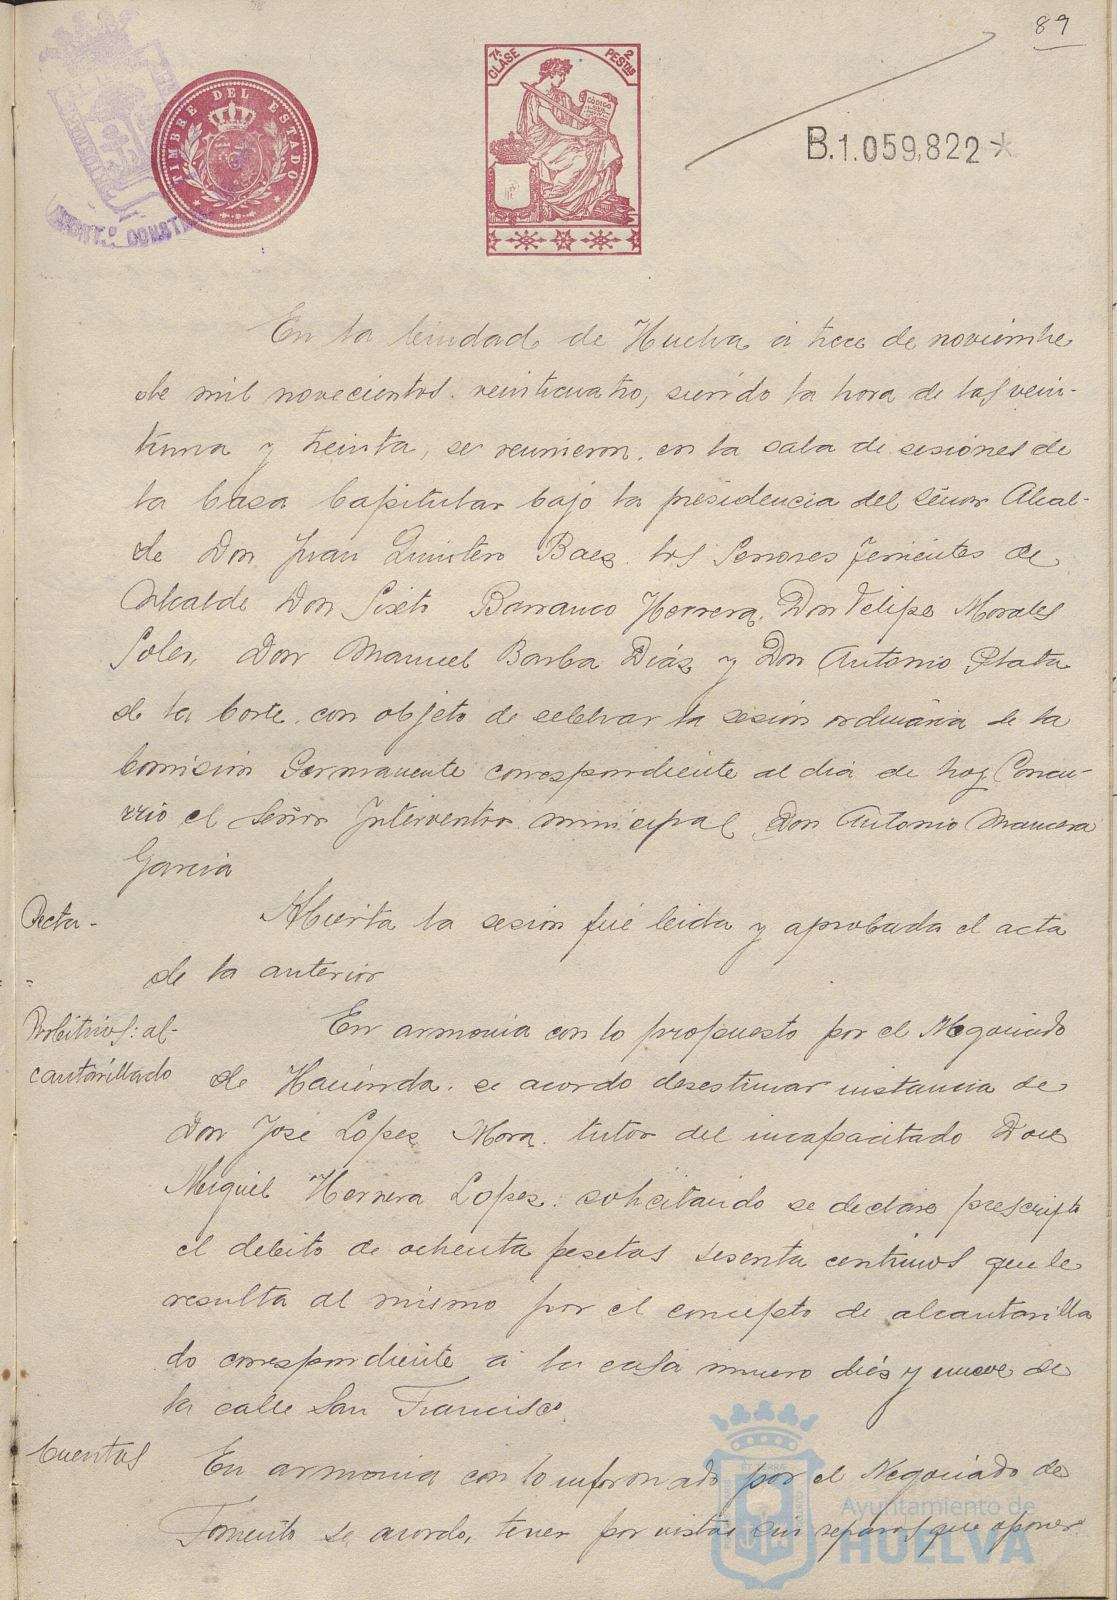 89
TIMBRE DEL ESTADO
7ª CLASE
2 PESTAS
CÓDIGO
B.1.059,822*
CONST
En la Ciudad de Huelva á trece de noviembre
de mil novecientos veinticuatro, siendo la hora de las vein-
tiuna y treinta, se reunieron en la sala de sesiones de
la Casa Capitular bajo la presidencia del Señor Alcal-
de Don Juan Quintero Baez los Señores Tenientes de
Alcalde Don Sixto Barranco Herrera, Don Felipe Morales
Soler, Don Manuel Barba Diáz y Don Antonio Plata
de la Corte con objeto de celebrar la sesión ordinaria de la
Comisión Permanente correspondiente al dia de hoy. Concu-
rrió el Señor Interventor municipal Don Antonio Mancera
Garcia
Acta-
Abierta la sesion fué leida y aprobada el acta
de la anterior
Arbitrios: al-
cantarillado
En armonia con lo propuesto por el Negociado
de Hacienda se acordo desestimar instancia de
Don José Lopez Mora tutor del incapacitado Don
Miguel Herrera Lopez solicitando se declare prescripto
el debito de ochenta pesetas sesenta centimos que le
resulta al mismo por el concepto de alcantarilla
do correspondiente á la casa numero diés y nueve de
la calle San Francisco.
Cuentas
En armonia con lo informado por el Negociado de
Fomento se acordo, tener por vistas sin reparos que oponer
Ayuntamiento de
HUELVA